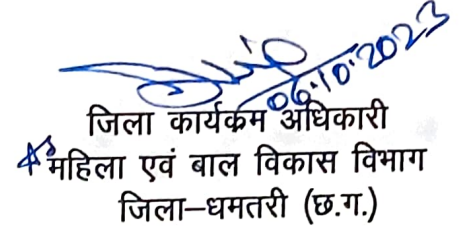 06.10.2023
जिला कार्यक्रम अधिकारी
महिला एवं बाल विकास विभाग
जिला–धमतरी (छ.ग.)